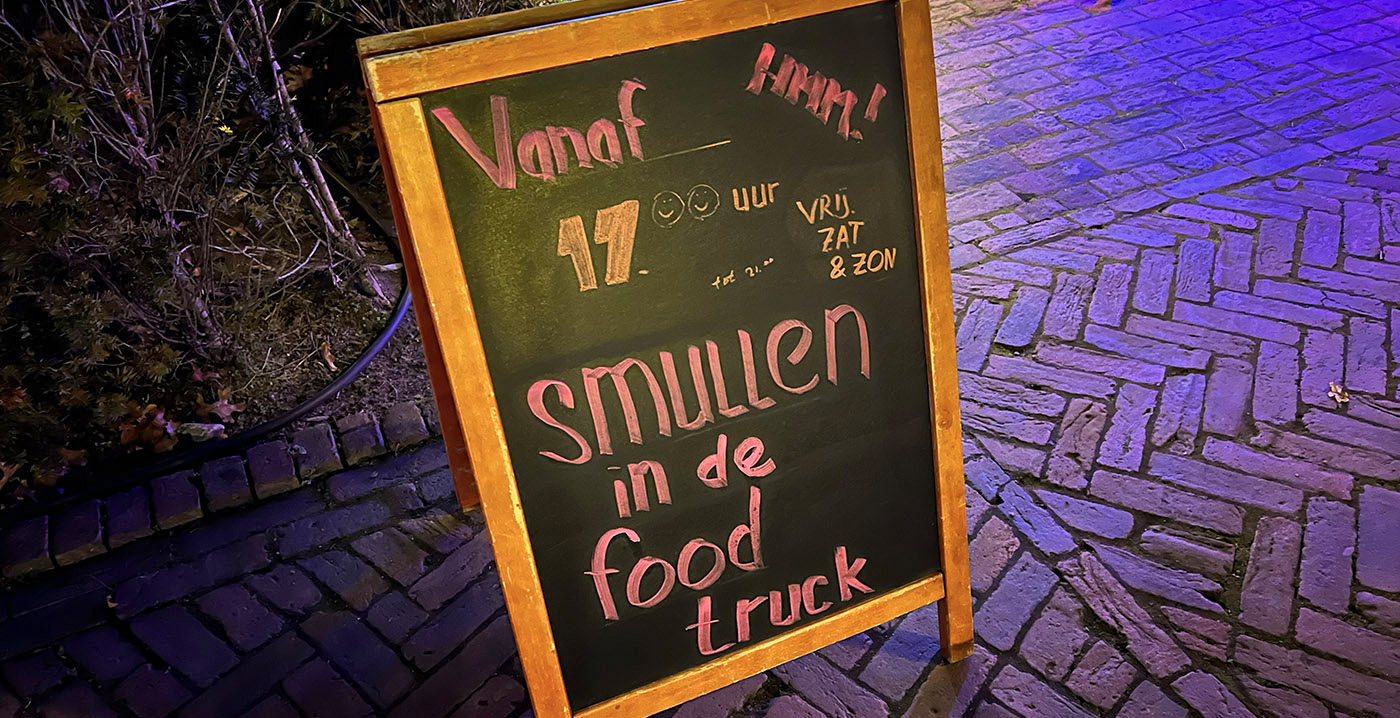 Vanaf
HMM!
17.00 uur
tot 21.00
VRIJ.
ZAT
& ZON
smullen
in de
food
truck